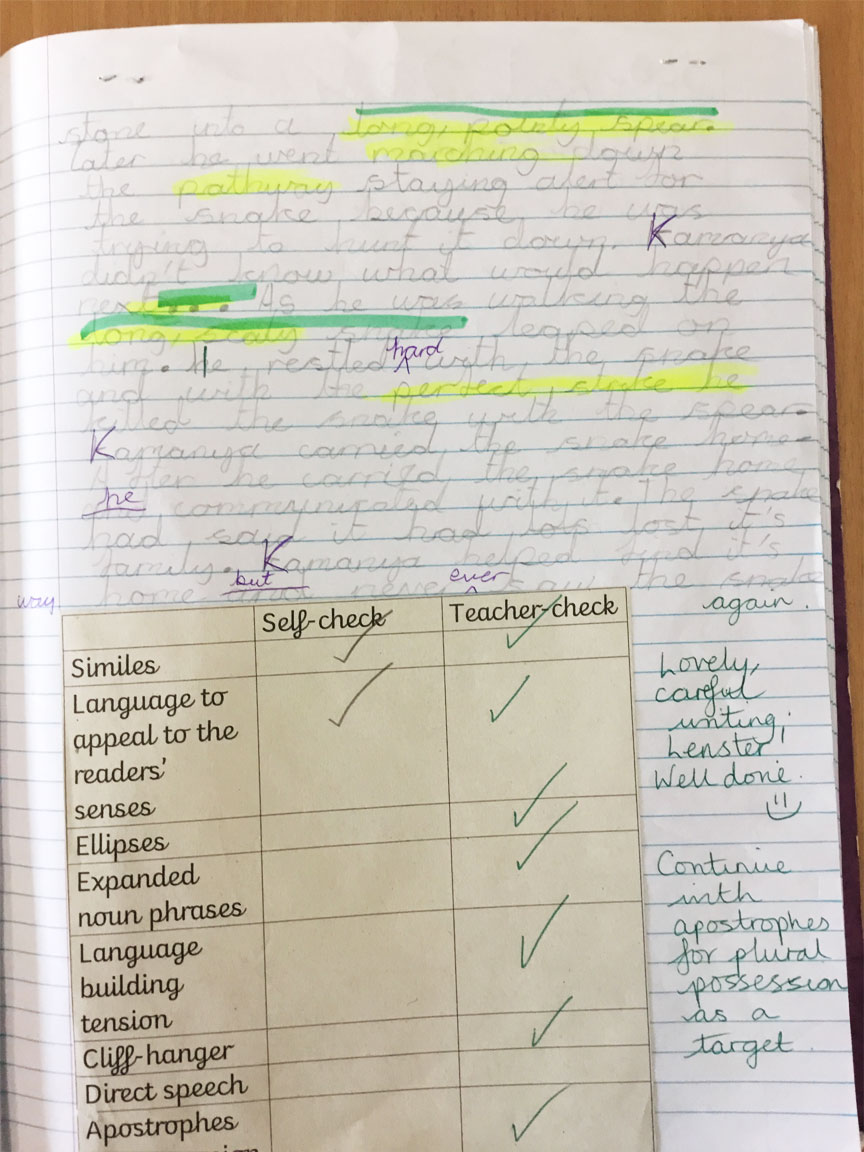 stone into a long, pointy spear.
later he went marching down
the pathway staying alert for
the snake because he was
trying to hunt it down. Kamanya
didn't know what would happen
next.... As he was walking the
long, scaly snake leaped on
him. He restled hard with the snake
and with the perfect strike he
killed the snake with the spear.
Kamanya carried the snake home.
After he carried the snake home
he communicated with it. The snake
had said it had lost it's
family. Kamanya helped find it's
way
home and but never ever saw the snake
again.
Self-check Teacher-check
Similes
Language to
appeal to the
readers'
senses
Ellipses
Expanded
noun phrases
Language
building
tension
Cliff-hanger
Direct speech
Apostrophes
Lovely,
careful
writing,
Lenster!
Well done.
Continue
with
apostrophes
for plural
possession
as a
target.